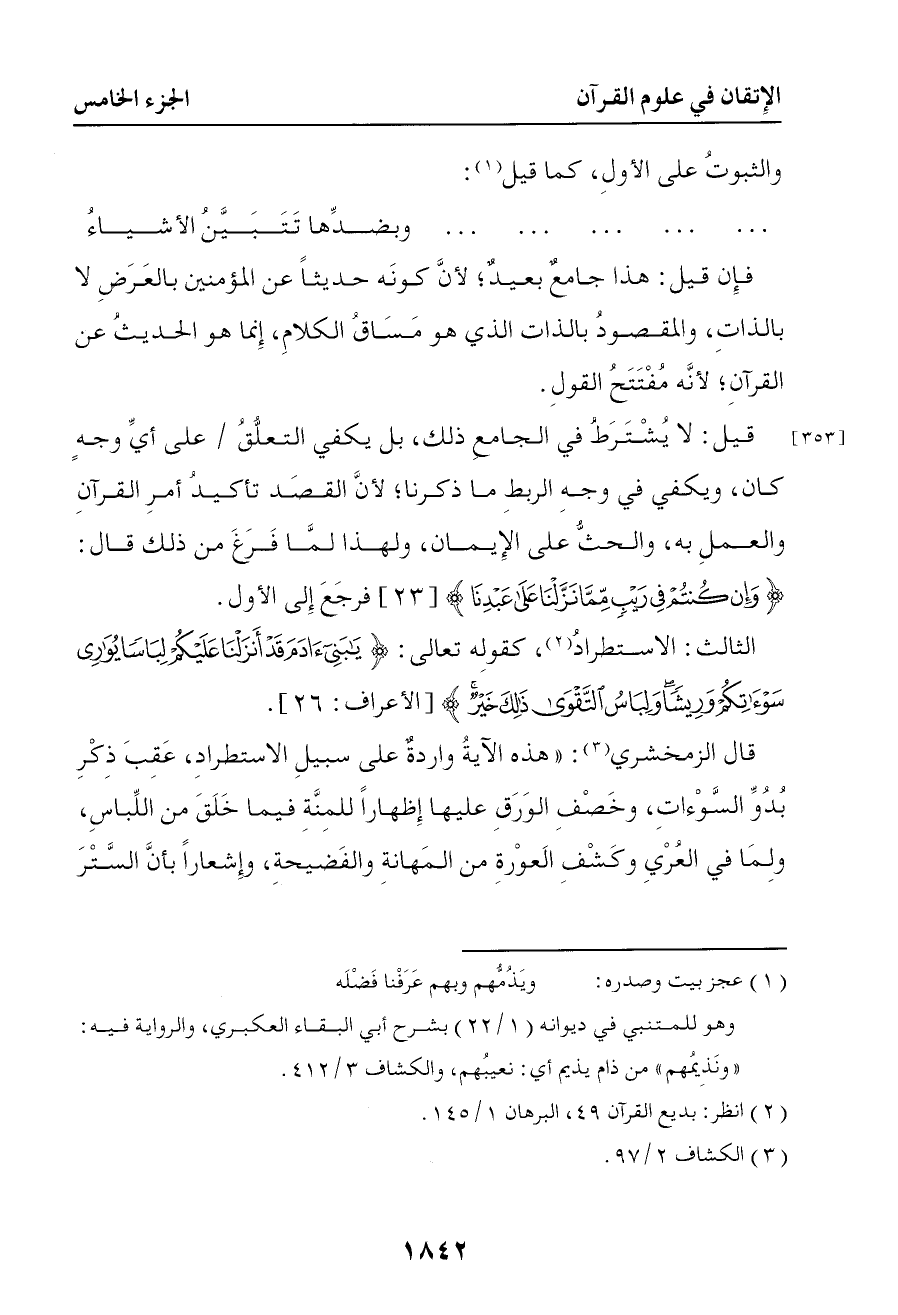 الإتقان في علوم القرآن الجزء الخامس
والثبوتُ على الأولِ، كما قيل(١):
... ... ... ... ... وبضدِّها تَتَبَيَّنُ الأشياءُ
فإن قيل: هذا جامعٌ بعيدٌ؛ لأنَّ كونَه حديثاً عن المؤمنين بالعَرَضِ لا
بالذاتِ، والمقصودُ بالذات الذي هو مَسَاقُ الكلامِ، إنما هو الحديثُ عن
القرآنِ؛ لأنَّه مُفْتَتَحُ القولِ.
[٣٥٣] قيل: لا يُشْتَرَطُ في الجامعِ ذلك، بل يكفي التعلُّقُ / على أيِّ وجهٍ
كان، ويكفي في وجهِ الربط ما ذكرنا؛ لأنَّ القصدَ تأكيدُ أمرِ القرآنِ
والعملِ به، والحثُّ على الإيمان، ولهذا لمَّا فَرَغَ من ذلك قال:
﴿ وَإِن كُنتُمْ فِي رَيْبٍ مِّمَّا نَزَّلْنَا عَلَىٰ عَبْدِنَا ﴾ [٢٣] فرجَعَ إلى الأول.
الثالث: الاستطرادُ(٢)، كقوله تعالى: ﴿ يَٰبَنِيٓ ءَادَمَ قَدْ أَنزَلْنَا عَلَيْكُمْ لِبَاسًا يُوَٰرِي
سَوْءَٰتِكُمْ وَرِيشًا ۖ وَلِبَاسُ ٱلتَّقْوَىٰ ذَٰلِكَ خَيْرٌ ۚ ﴾ [الأعراف: ٢٦].
قال الزمخشري(٣): «هذه الآيةُ واردةٌ على سبيلِ الاستطراد، عَقِبَ ذِكْرِ
بُدُوِّ السَّوْءات، وخَصْفِ الوَرَقِ عليها إظهاراً للمنَّة فيما خَلَقَ من اللِّباس،
ولِمَا في العُرْي وكَشْفِ العَوْرةِ من المَهانة والفَضيحة، وإشعاراً بأنَّ السَّتْرَ
(١) عجز بيت وصدره: ويَذُمُّهم وبهم عَرَفْنا فَضْلَه
وهو للمتنبي في ديوانه (١/ ٢٢) بشرح أبي البقاء العكبري، والرواية فيه:
«ونَذِيمُهم» من ذام يذيم أي: نعيبُهم، والكشاف ٣/ ٤١٢.
(٢) انظر: بديع القرآن ٤٩، البرهان ١/ ١٤٥.
(٣) الكشاف ٢/ ٩٧.
١٨٤٢